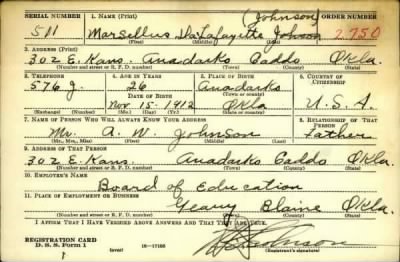 SERIAL NUMBER 1. NAME (Print) (Johnson) ORDER NUMBER
511 Marsellus DaLafayette Johson 2,750
(First) (Middle) (Last)
3. ADDRESS (Print)
302 E. Kans. Anadarko Caddo Okla.
(Number and street or R. F. D. number) (Town) (County) (State)
4. TELEPHONE 5. AGE IN YEARS 6. PLACE OF BIRTH 7. COUNTRY OF CITIZENSHIP
576 J. 26 Anadarko
DATE OF BIRTH (Town or county)
Nov 15- 1912 Okla U.S.A.
(Exchange) (Number) (Mo.) (Day) (Yr.) (State or country)
7. NAME OF PERSON WHO WILL ALWAYS KNOW YOUR ADDRESS 8. RELATIONSHIP OF THAT PERSON
Mr. A. W. Johnson Father
(Mr., Mrs., Miss) (First) (Middle) (Last)
9. ADDRESS OF THAT PERSON
302 E. Kans. Anadarko Caddo Okla.
(Number and street or R. F. D. number) (Town) (County) (State)
10. EMPLOYER'S NAME
Board of Education
11. PLACE OF EMPLOYMENT OR BUSINESS
Geary Blaine Okla.
(Number and street or R. F. D. number) (Town) (County) (State)
I AFFIRM THAT I HAVE VERIFIED ABOVE ANSWERS AND THAT THEY ARE TRUE.
REGISTRATION CARD
D. S. S. Form 1 (over) 16-17105 (Registrant's signature)